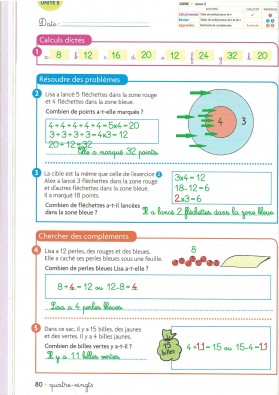 UNITÉ 8
Date :
Calculs dictés
1 8 12 16 20 12 24 32 20
Résoudre des problèmes
2 Lisa a lancé 5 fléchettes dans la zone rouge
et 4 fléchettes dans la zone bleue.
Combien de points a-t-elle marqués ?
4+4+4+4+4=5x4=20
3+3+3+3=4x3=12
20+12=32
Elle a marqué 32 points.
4 3
3 La cible est la même que celle de l'exercice 2
Alex a lancé 3 fléchettes dans la zone rouge
et d'autres fléchettes dans la zone bleue.
Il a marqué 18 points.
Combien de fléchettes a-t-il lancées
dans la zone bleue ?
3x4=12
18-12=6
2x3=6
Il a lancé 2 fléchettes dans la zone bleue
Chercher des compléments
4 Lisa a 12 perles, des rouges et des bleues.
Elle a caché ses perles bleues sous une feuille.
Combien de perles bleues Lisa a-t-elle ?
8
8+4=12 ou 12-8=4
Lisa a 4 perles bleues.
5 Dans ce sac, il y a 15 billes, des jaunes
et des vertes. Il y a 4 billes jaunes.
Combien de billes vertes y a-t-il ?
Il y a 11 billes vertes.
15
billes
4+11=15 ou 15-4=11
80 • quatre-vingts